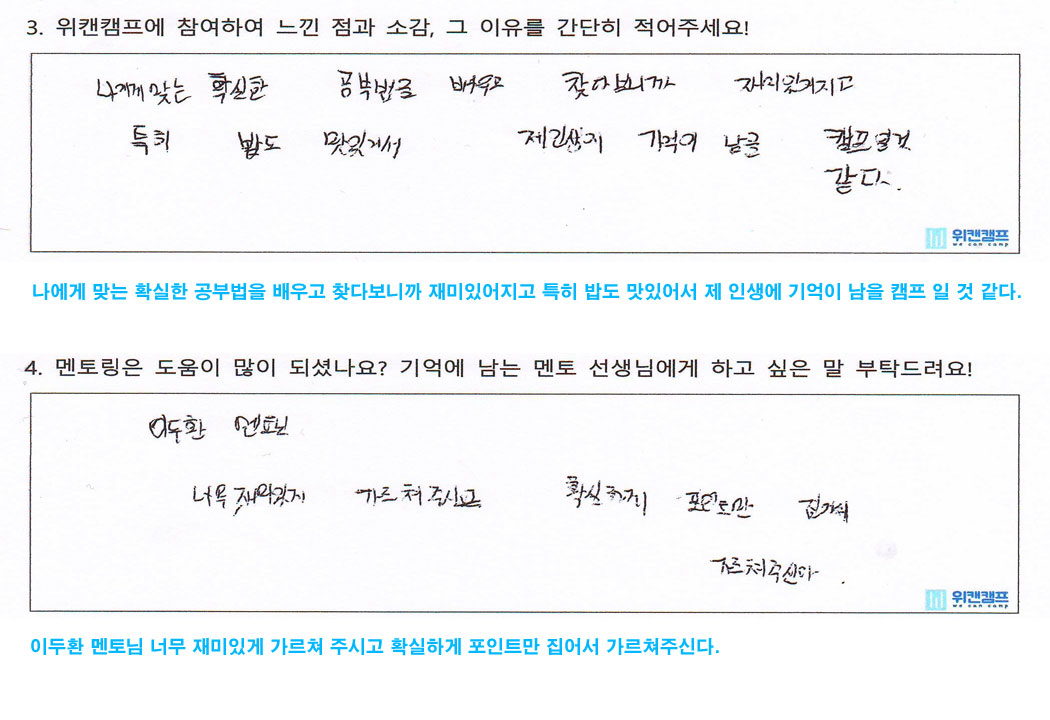 3. 위캔캠프에 참여하여 느낀 점과 소감, 그 이유를 간단히 적어주세요!
나에게 맞는 확실한 공부법을 배우고 찾아보니까 재미있어지고
특히 밥도 맛있어서 제 인생에 기억이 남을 캠프 일 것
같다.
위캔캠프
we can camp
나에게 맞는 확실한 공부법을 배우고 찾다보니까 재미있어지고 특히 밥도 맛있어서 제 인생에 기억이 남을 캠프 일 것 같다.
4. 멘토링은 도움이 많이 되셨나요? 기억에 남는 멘토 선생님에게 하고 싶은 말 부탁드려요!
이두환 멘토님
너무 재미있게 가르쳐 주시고 확실하게 포인트만 집어서
가르쳐주신다.
위캔캠프
we can camp
이두환 멘토님 너무 재미있게 가르쳐 주시고 확실하게 포인트만 집어서 가르쳐주신다.